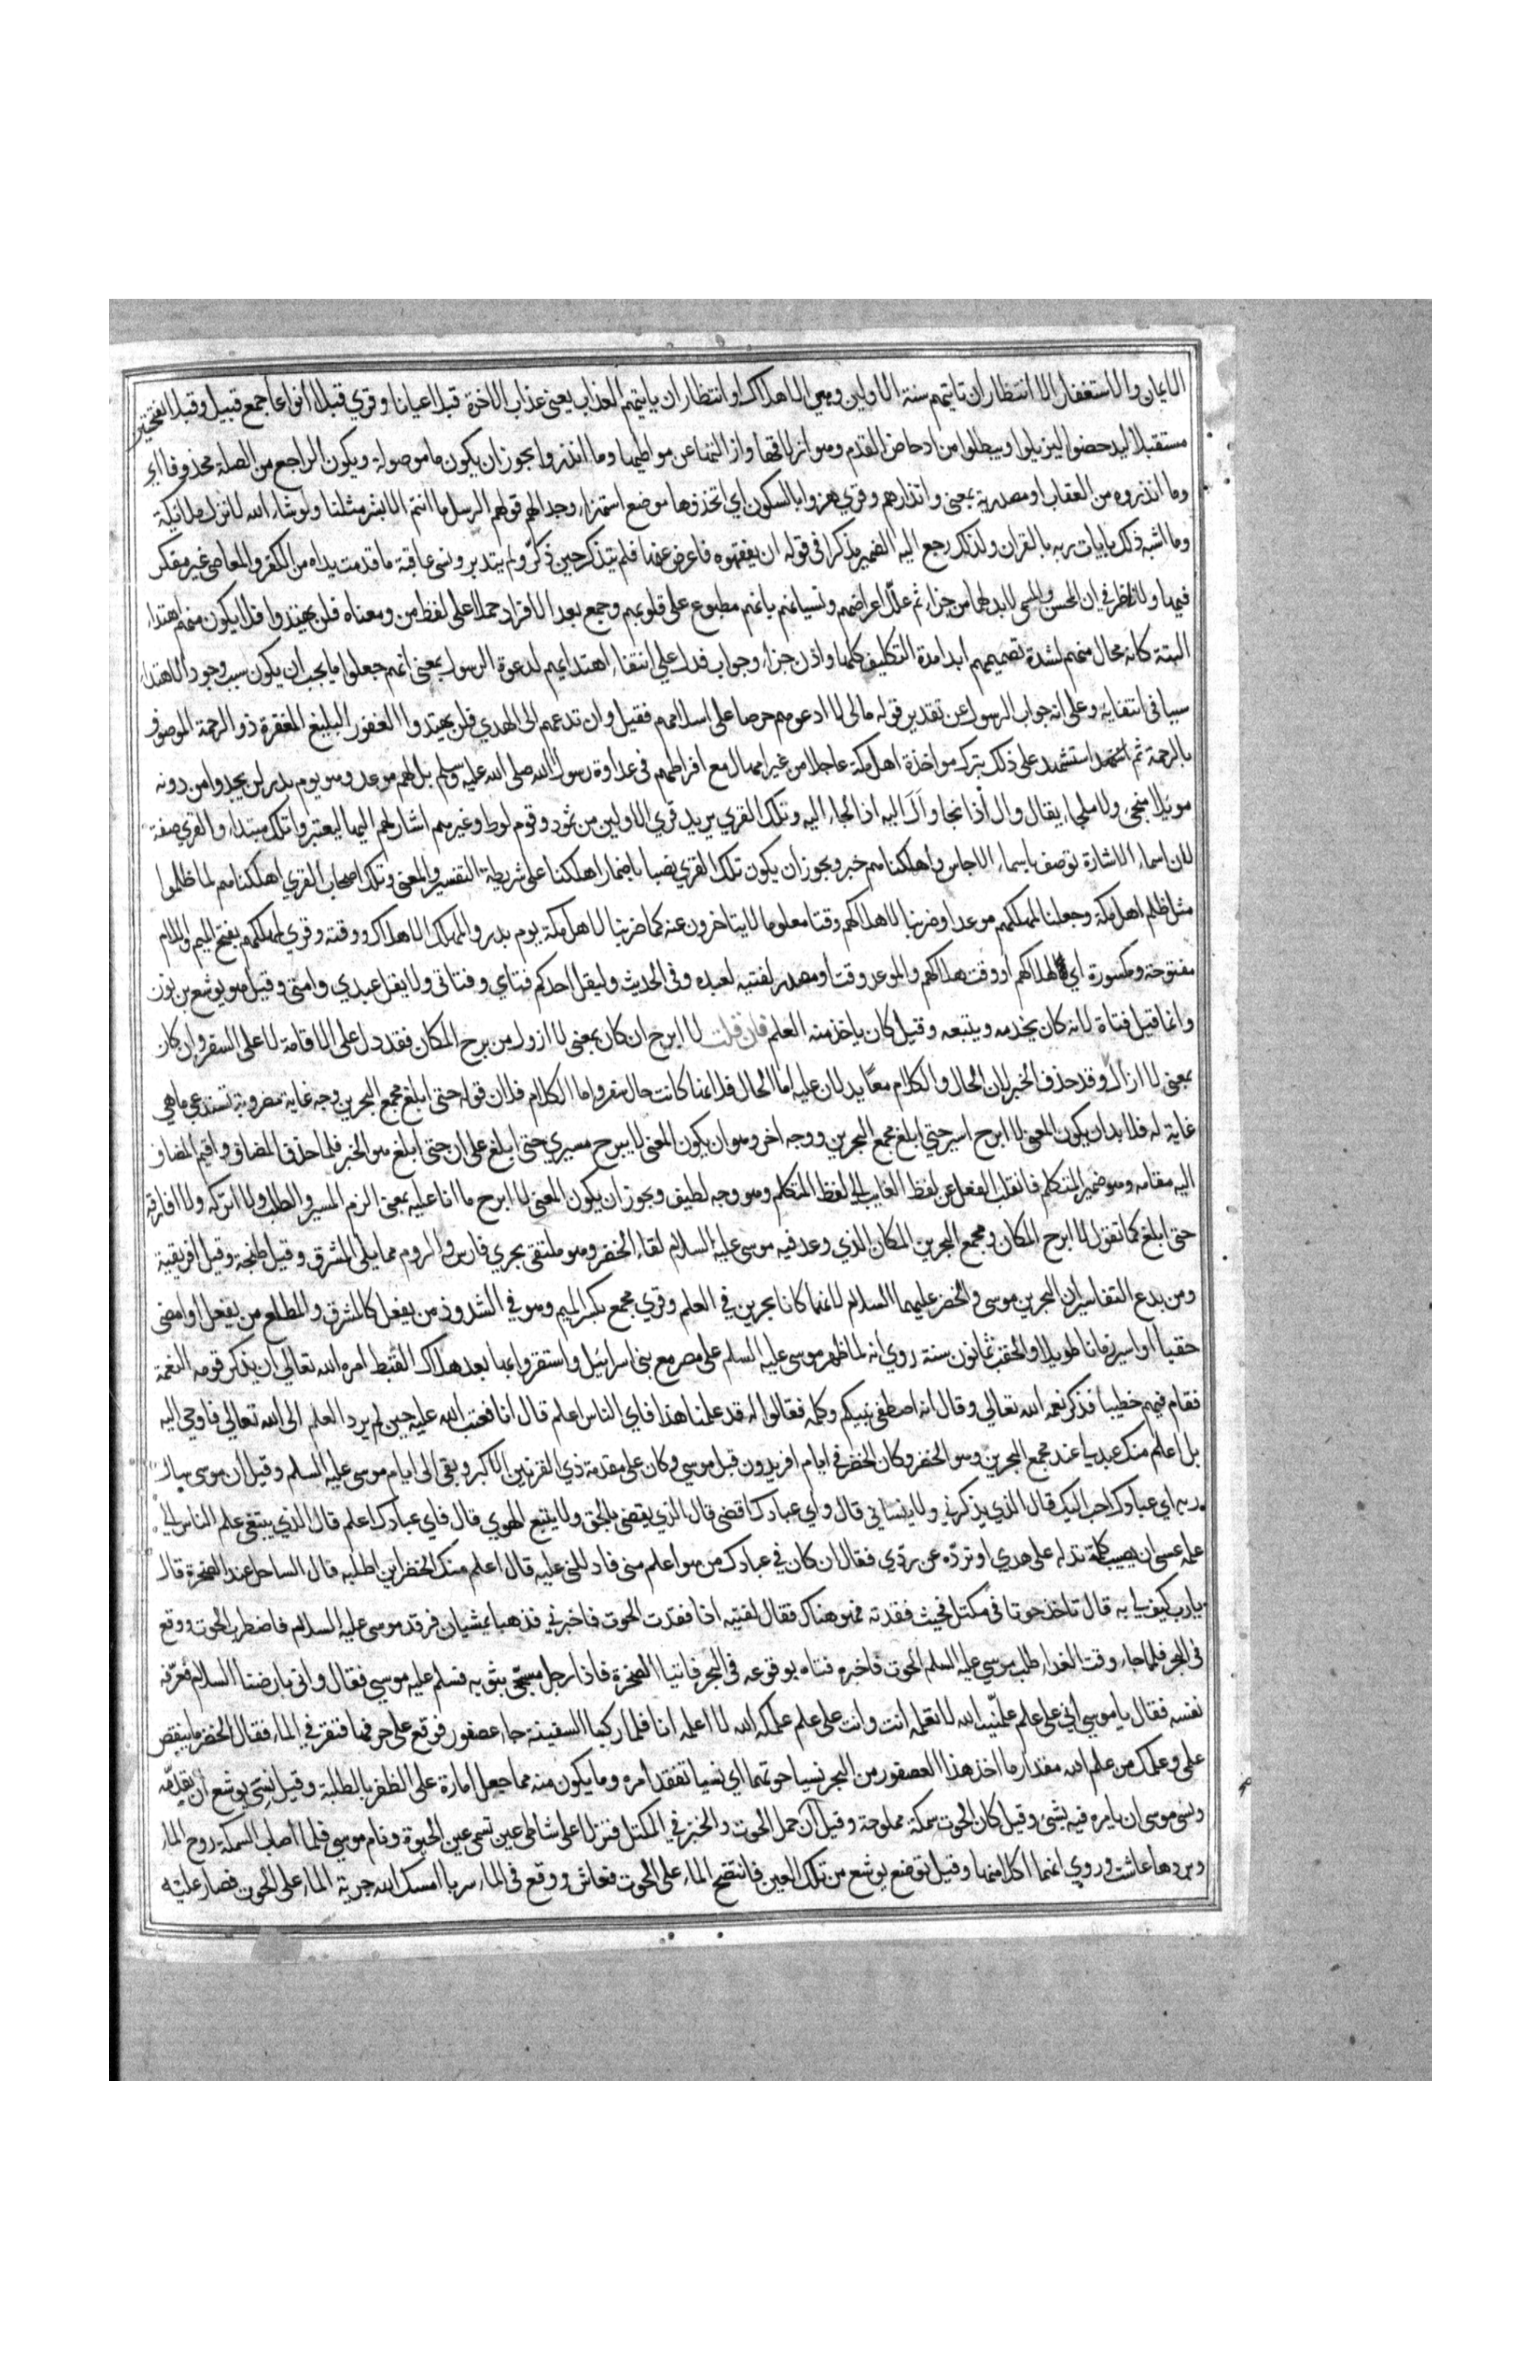 الايمان والاستغفار الا انتظار ان تاتيهم سنة الاولين وهي الاهلاك او انتظار ان ياتيهم العذاب يعني عذاب الاخرة قبلا عيانا وقري قبلا انواعا جمع قبيل وقبلا بفتحتين
مستقبلا ليدحضوا ليزيلوا ويبطلوا من ادحاض القدم وهو ازلاقها وازالتها عن موطيها وما انذروا يجوز ان يكون ما موصولة ويكون الراجع من الصلة محذوفا اي
وما انذروه من العقاب او مصدرية بمعنى وانذارهم وقري هزوا بالسكون اي اتخذوها موضع استهزاء وجدالهم قولهم الرسل ما انتم الا بشر مثلنا ولو شاء الله لانزل ملائكة
وما اشبه ذلك بايات ربه بالقران ولذلك رجع اليه الضمير مذكرا في قوله ان يفقهوه فاعرض عنها فلم يتذكر حين ذكّر ولم يتدبر ونسي عاقبة ما قدمت يداه من الكفر والمعاصي غير مفكر
فيها ولا ناظر في ان المحسن والمسي لا بد لهما من جزاء ثم علّل اعراضهم ونسيانهم بانهم مطبوع على قلوبهم وجمع بعد الافراد حملا على لفظ من ومعناه فلن يهتدوا فلا يكون منهم اهتداء
البتة كانه محال منهم لشدة تصميمهم ابدا مدة التكليف كلها واذن جزاء وجواب فدل على انتفاء اهتدايهم لدعوة الرسول بمعنى انهم جعلوا ما يجب ان يكون سبب وجود الاهتداء
سببا في انتفايه وعلى انه جواب الرسول عن تقدير قوله مالي لا ادعوهم حرصا على اسلامهم فقيل وان تدعهم الى الهدي فلن يهتدوا الغفور البليغ المغفرة ذو الرحمة الموصوف
بالرحمة ثم استشهد على ذلك بترك مواخذة اهل مكة عاجلا من غير امهال مع افراطهم في عداوة رسول الله صلى الله عليه وسلم بل لهم موعد وهو يوم بدر لن يجدوا من دونه
مويلا منجى ولا ملجاء يقال وال اذا نجا ووال اليه اذا لجاء اليه وتلك القري يريد قري الاولين من ثمود وقوم لوط وغيرهم اشار لهم اليها ليعتبروا تلك مبتداء والقري صفة
لان اسماء الاشارة توصف باسماء الاجناس واهلكناهم خبر ويجوز ان يكون تلك القري نصبا باضمار اهلكنا على شريطة التفسير والمعنى وتلك اصحاب القري اهلكناهم لما ظلموا
مثل ظلم اهل مكة وجعلنا لمهلكهم موعدا وضربنا لاهلاكهم وقتا معلوما لا يتاخرون عنه كما ضربنا لاهل مكة يوم بدر والمهلك الاهلاك ووقته وقري لمهلكهم بفتح الميم واللام
مفتوحة ومكسورة اي لهلاكهم او وقت هلاكهم والموعد وقت او مصدر لفتيه لعبده وفي الحديث وليقل احدكم فتاي وفتاتي ولا يقل عبدي وامتي وقيل هو يوشع بن نون
وانما قيل فتاه لانه كان يخدمه ويتبعه وقيل كان ياخذ منه العلم فان قلت لا ابرح ان كان بمعنى لا ازول من برح المكان فقد دل على الاقامة لا على السفر وان كان
بمعنى لا ازال وقد حذف الخبر لان الحال والكلام معًا يدلان عليه اما الحال فلانها كانت حال سفر واما الكلام فلان قوله حتى ابلغ مجمع البحرين وجه غاية مضروبة تستدعي ما هي
غاية له فلا بد ان يكون المعنى لا ابرح اسير حتى ابلغ مجمع البحرين ووجه اخر وهو ان يكون المعنى لا يبرح مسيري حتى ابلغ على ان حتى ابلغ هو الخبر فلما حذف المضاف واقيم المضاف
اليه مقامه وهو ضمير المتكلم فانقلب الفعل عن لفظ الغايب الي لفظ المتكلم وهو وجه لطيف ويجوز ان يكون المعنى لا ابرح ما انا عليه بمعنى الزم المسير والطلب ولا اتركه ولا افارقه
حتى ابلغ كما تقول لا ابرح المكان ومجمع البحرين المكان الذي وعد فيه موسى عليه السلام لقاء الخضر وهو ملتقى بحري فارس والروم مما يلي المشرق وقيل طنجة وقيل افريقية
ومن بدع التفاسير ان البحرين موسى والخضر عليهما السلام لانهما كانا بحرين في العلم وقري مجمع بكسر الميم وهو في الشذوذ من يفعل كالمشرق والمطلع من يفعل او امضى
حقبا او اسير زمانا طويلا والحقب ثمانون سنة روي انه لما ظهر موسى عليه السلم على مصر مع بني اسرائيل واستقروا بها بعد هلاك القبط امره الله تعالى ان يذكر قومه النعمة
فقام فيهم خطيبا فذكر نعمه الله تعالي وقال انه اصطفى نبيكم وكلمه فقالوا له قد علمنا هذا فاي الناس اعلم قال انا فعتب الله عليه حين لم يرد العلم الى الله تعالي فاوحي اليه
بل اعلم منك عبد لي عند مجمع البحرين وهو الخضر وكان الخضر في ايام افريدون قبل موسي وكان على مقدمة ذي القرنين الاكبر وبقي الى ايام موسى عليه السلم وقيل ان موسى سال
ربه اي عبادك احب اليك قال الذي يذكرني ولا ينساني قال واي عبادك اقضى قال الذي يقضي بالحق ولا يتبع الهوي قال فاي عبادك اعلم قال الذي يبتغي علم الناس الي
علمه عسى ان يصيب كلمة تدله على هدي او تردّه عن ردّي فقال ان كان في عبادك من هو اعلم مني فادللني عليه قال اعلم منك الخضر اين اطلبه قال الساحل عند الصخرة قال
يارب كيف لي به قال تاخذ حوتا في مكتل فحيث فقدته فهو هناك فقال لفتيه اذا فقدت الحوت فاخبرني فذهبا يمشيان فرقد موسى عليه السلام فاضطرب الحوت ووقع
في البحر فلما جاء وقت الغداء طلب موسي عليه السلم الحوت فاخبره فتاه بوقوعه في البحر فاتيا الصخرة فاذا رجل مسجّى بثوبه فسلم عليه موسي فقال واني بارضنا السلام فعرّفه
نفسه فقال يا موسى اني على علم علّمنيه الله لا تعلمه انت وانت على علم علمكه الله لا اعلمه انا فلما ركبا السفينة جاء عصفور فوقع على حرفها فنقر في الماء فقال الخضر ما ينقص
علمي وعلمك من علم الله مقدار ما اخذ هذا العصفور من البحر نسيا حوتهما اي نسيا تفقد امره وما يكون منه مما جعل امارة على الظفر بالطلبة وقيل نسي يوشع ان يقدّمه
ونسي موسى ان يامره فيه بشئ وقيل كان الحوت سمكة مملوحة وقيل ان حمل الحوت والخبز في المكتل فنزلا على شاطي عين تسمى عين الحيوة ونام موسي فلما اصاب السمكة روح الماء
وبردها عاشت وروي انهما اكلا منها وقيل توضع يوشع من تلك العين فانتضح الماء على الحوت فعاش ووقع في الماء سربا امسك الله جرية الماء على الحوت فصار عليه